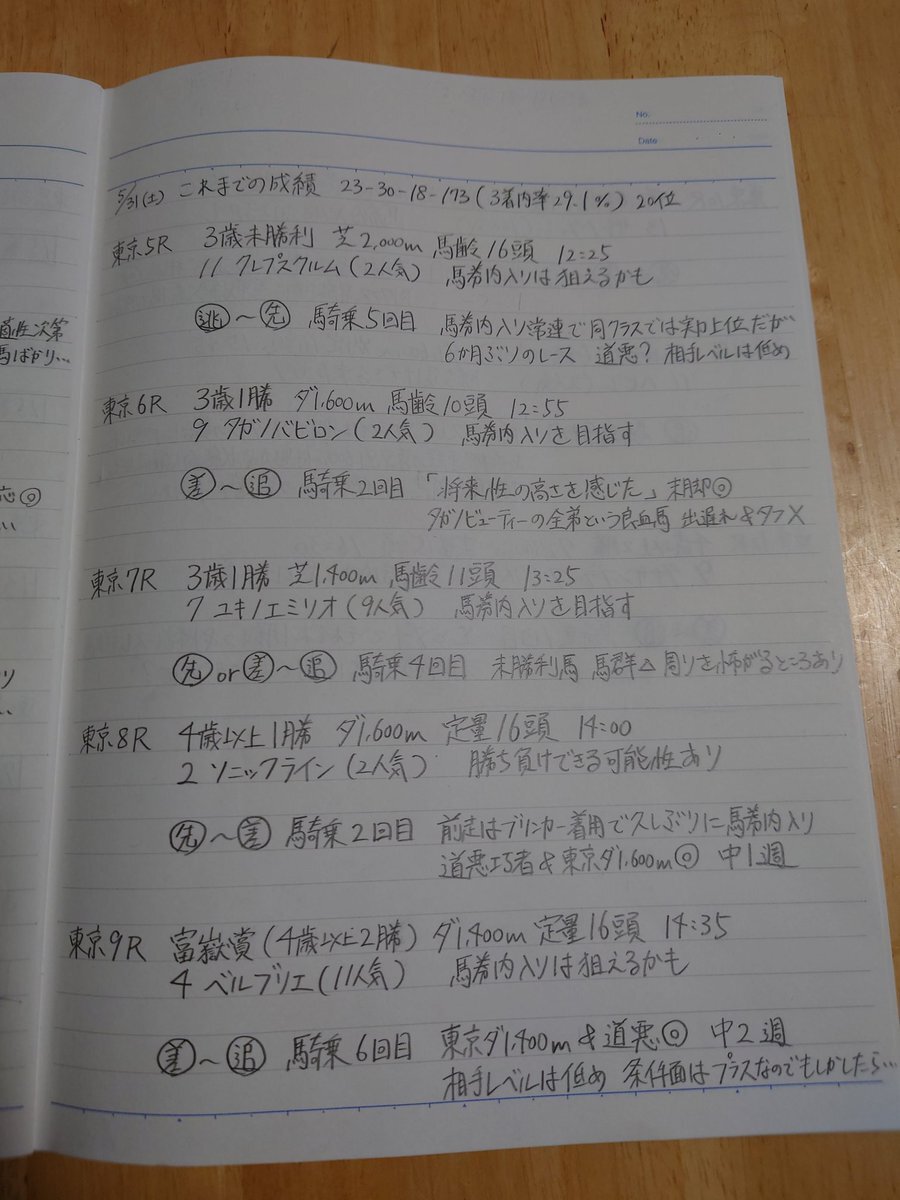 No.
Date
5/31(土) これまでの成績 23-30-18-173(3着内率29.1%) 20位
東京5R 3歳未勝利 芝2,000m 馬齢16頭 12:25
11 クレプスクルム(2人気) 馬券内入りは狙えるかも
逃~先 騎乗5回目 馬券内入り常連で同クラスでは実力上位だが
6か月ぶりのレース 道悪? 相手レベルは低め
東京6R 3歳1勝 ダ1,600m 馬齢10頭 12:55
9 タガノバビロン(2人気) 馬券内入りを目指す
差~追 騎乗2回目 「将来性の高さを感じた」 末脚◎
タガノビューティーの全弟という良血馬 出遅れ&タフX
東京7R 3歳1勝 芝1,400m 馬齢11頭 13:25
7 ユキノエミリオ(9人気) 馬券内入りを目指す
先or差~追 騎乗4回目 未勝利馬 馬群△ 周りを怖がるところあり
東京8R 4歳以上1勝 ダ1,600m 定量16頭 14:00
2 ソニックライン(2人気) 勝ち負けできる可能性あり
先~差 騎乗2回目 前走はブリンカー着用で久しぶりに馬券内入り
道悪巧者&東京ダ1,600m◎ 中1週
東京9R 富嶽賞(4歳以上2勝) ダ1,400m 定量16頭 14:35
4 ベルブリエ(11人気) 馬券内入りは狙えるかも
差~追 騎乗6回目 東京ダ1,400m&道悪◎ 中2週
相手レベルは低め 条件面はプラスなのでもしかしたら…
次第
馬ばかり…
応◎